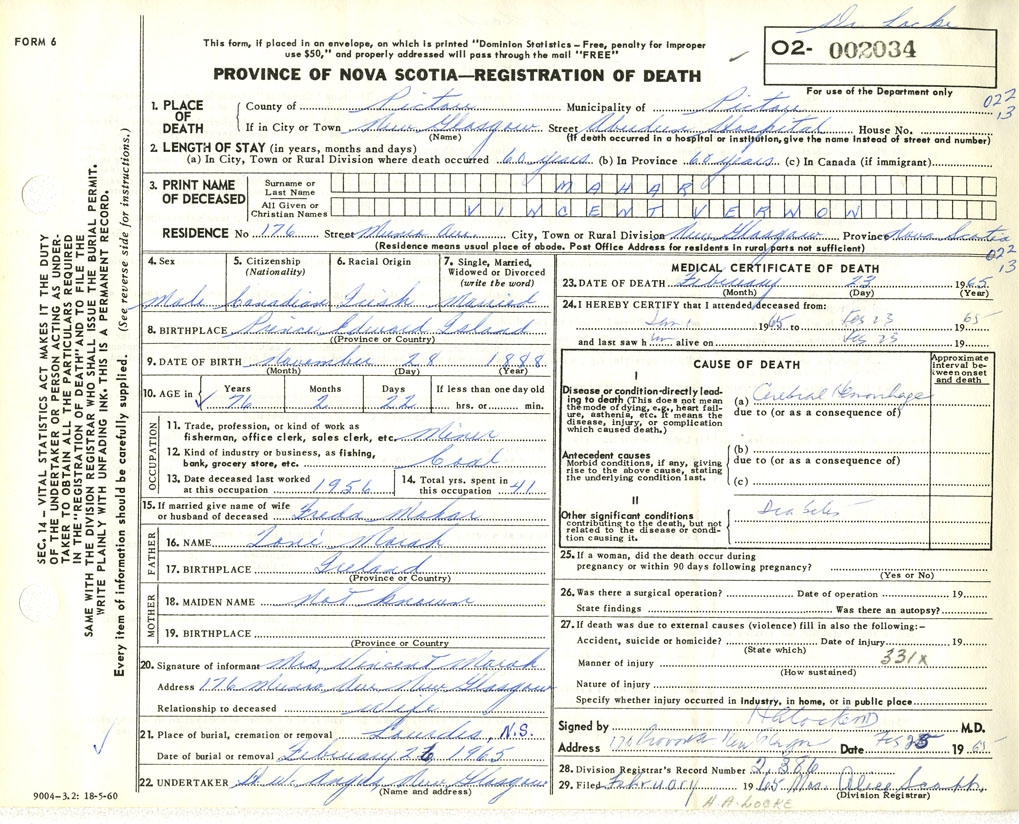 Dr. Locke
FORM 6
This form, if placed in an envelope, on which is printed "Dominion Statistics – Free, penalty for improper
use $50," and properly addressed will pass through the mail "FREE"
PROVINCE OF NOVA SCOTIA—REGISTRATION OF DEATH
O2- 002034
For use of the Department only
022
13
SEC. 14 – VITAL STATISTICS ACT MAKES IT THE DUTY
OF THE UNDERTAKER OR PERSON ACTING AS UNDER-
TAKER TO OBTAIN ALL THE PARTICULARS REQUIRED
IN THE "REGISTRATION OF DEATH" AND TO FILE THE
SAME WITH THE DIVISION REGISTRAR WHO SHALL ISSUE THE BURIAL PERMIT.
WRITE PLAINLY WITH UNFADING INK. THIS IS A PERMANENT RECORD.
Every item of information should be carefully supplied. (See reverse side for instructions.)
1. PLACE OF DEATH
County of Pictou Municipality of Pictou
If in City or Town New Glasgow Street Aberdeen Hospital House No.
(Name) (If death occurred in a hospital or institution, give the name instead of street and number)
2. LENGTH OF STAY (in years, months and days)
(a) In City, Town or Rural Division where death occurred 60 years (b) In Province 60 years (c) In Canada (if immigrant)
3. PRINT NAME OF DECEASED
Surname or Last Name MAHAR
All Given or Christian Names VINCENT VERNON
RESIDENCE No 176 Street Ave. City, Town or Rural Division New Glasgow Province Nova Scotia
(Residence means usual place of abode. Post Office Address for residents in rural parts not sufficient)
022
13
4. Sex
Male
5. Citizenship
(Nationality)
Canadian
6. Racial Origin
Irish
7. Single, Married,
Widowed or Divorced
(write the word)
Married
8. BIRTHPLACE Prince Edward Island
(Province or Country)
9. DATE OF BIRTH November 28 1888
(Month) (Day) (Year)
10. AGE in
Years Months Days If less than one day old
76 2 22 hrs. or min.
OCCUPATION
11. Trade, profession, or kind of work as
fisherman, office clerk, sales clerk, etc. Miner
12. Kind of industry or business, as fishing,
bank, grocery store, etc. Coal
13. Date deceased last worked
at this occupation 1956
14. Total yrs. spent in
this occupation 41
15. If married give name of wife
or husband of deceased Freda Mahar
FATHER
16. NAME
17. BIRTHPLACE Ireland
(Province or Country)
MOTHER
18. MAIDEN NAME Not known
19. BIRTHPLACE
(Province or Country)
20. Signature of informant Mrs Vincent
Address 176 Ave New Glasgow
Relationship to deceased wife
21. Place of burial, cremation or removal Lourdes, N.S.
Date of burial or removal February 26 1965
22. UNDERTAKER H.W. Angus New Glasgow
(Name and address)
9004-3.2: 18-5-60
MEDICAL CERTIFICATE OF DEATH
23. DATE OF DEATH February 23 1965
(Month) (Day) (Year)
24. I HEREBY CERTIFY that I attended deceased from:
Jan 1 1965 to Feb 23 1965
and last saw him alive on Feb 23 19
CAUSE OF DEATH
Approximate interval between onset and death
I
Disease or condition-directly lead-
ing to death (This does not mean
the mode of dying, e.g., heart fail-
ure, asthenia, etc. It means the
disease, injury, or complication
which caused death.)
(a) Cerebral Hemorrhage
due to (or as a consequence of)
Antecedent causes
Morbid conditions, if any, giving
rise to the above cause, stating
the underlying condition last.
(b)
due to (or as a consequence of)
(c)
II
Other significant conditions
contributing to the death, but not
related to the disease or condi-
tion causing it.
Diabetes
25. If a woman, did the death occur during
pregnancy or within 90 days following pregnancy?
(Yes or No)
26. Was there a surgical operation? Date of operation 19
State findings Was there an autopsy?
27. If death was due to external causes (violence) fill in also the following:–
Accident, suicide or homicide? Date of injury 19
(State which)
Manner of injury 331x
(How sustained)
Nature of injury
Specify whether injury occurred in Industry, in home, or in public place
Signed by HA Locke MD M.D.
Address 170 Provost New Glasgow Date Feb 25 1965
28. Division Registrar's Record Number 2,386
29. Filed February 1965 Mrs. Alice
(Division Registrar)
H.A. LOCKE